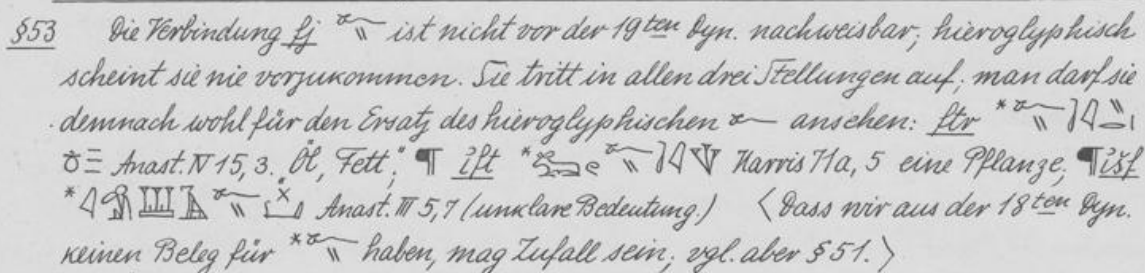 §53 Die Verbindung fj 𓆑𓏭 ist nicht vor der 19ten Dyn. nachweisbar; hieroglyphisch
scheint sie nie vorzukommen. Sie tritt in allen drei Stellungen auf; man darf sie
demnach wohl für den Ersatz des hieroglyphischen 𓆑 ansehen: ftr *𓆑𓏭
Anast. IV 15,3. "Öl, Fett"; ¶ ift * 𓆑𓏭 Harris 71a, 5 eine Pflanze; ¶ išf
* 𓆑𓏭 Anast. III 5,7 (unklare Bedeutung.) 〈Dass wir aus der 18ten Dyn.
keinen Beleg für *𓆑𓏭 haben, mag Zufall sein; vgl. aber § 51.〉